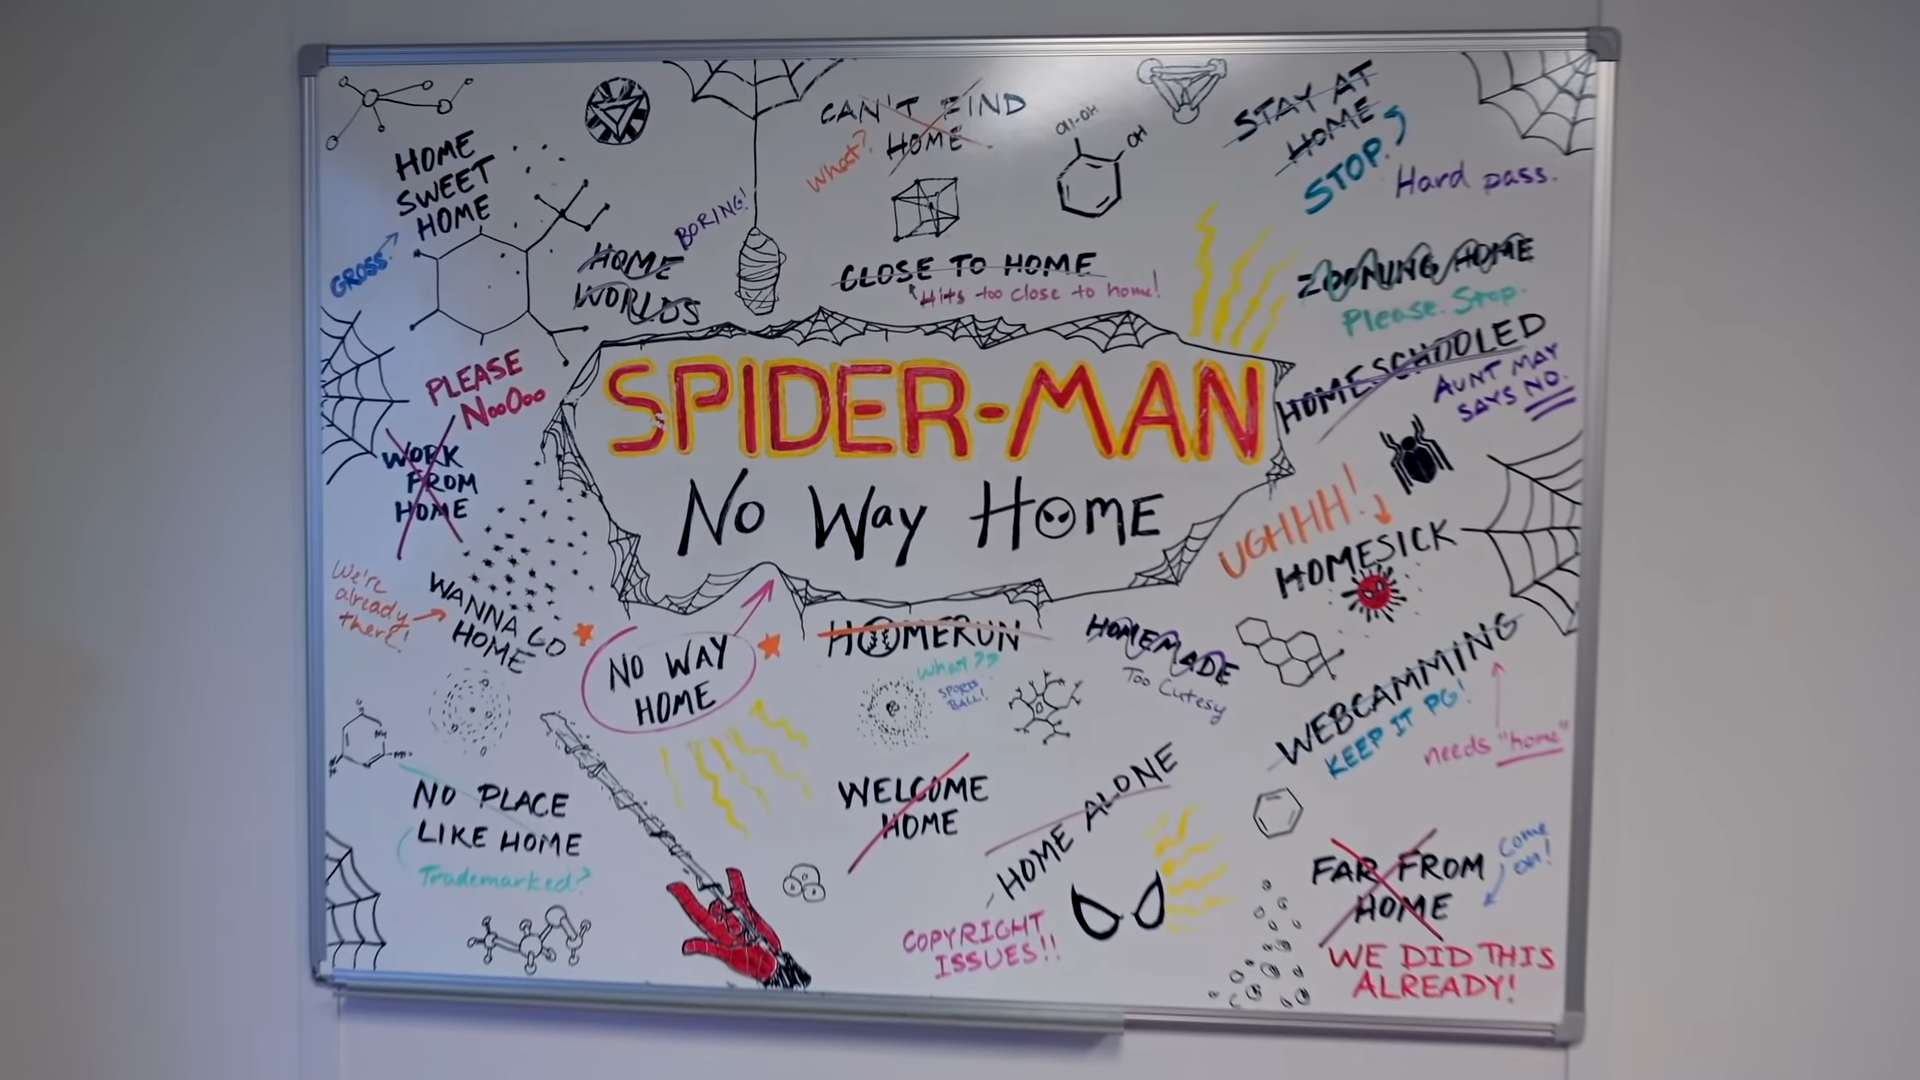 HOME
SWEET
HOME
GROSS.
CAN'T FIND
HOME
What?
OH
STAY AT
HOME
STOP.
Hard pass.
BORING!
HOME
WORLDS
CLOSE TO HOME
Hits too close to home!
ZOOMING HOME
Please. Stop.
HOMESCHOOLED
AUNT MAY
SAYS NO.
PLEASE
NooOoo
WORK
FROM
HOME
SPIDER-MAN
No Way HOME
UGHHH!
HOMESICK
We're
already
there!
WANNA GO
HOME
NO WAY
HOME
HOOMERUN
What??
SPORTS
BALL!
HOMEMADE
Too Cutesy
WEBCAMMING
KEEP IT PG!
needs "home"
NO PLACE
LIKE HOME
Trademarked?
WELCOME
HOME
HOME ALONE
COPYRIGHT
ISSUES!!
FAR FROM
HOME
COME
ON!
WE DID THIS
ALREADY!